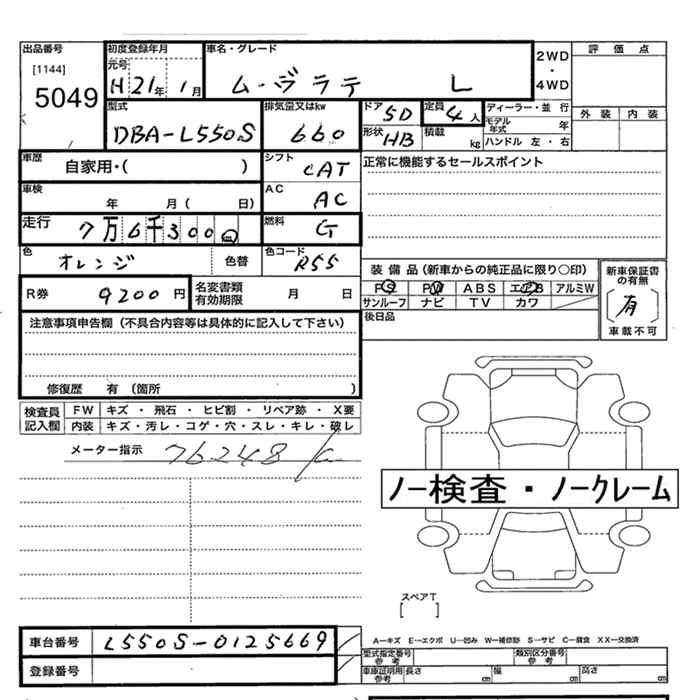 出品番号 初度登録年月 車名・グレード 評価点
[1144] 元号 2WD
5049 H21年 1月 ム・ヴラテ L ・
4WD
外装 内装
型式 排気量又はkw ドア 5D 定員 4人 ディーラー・並 行
DBA-L550S 660 形状 HB 積載 kg モデル年式 年
ハンドル 左・右
車歴 自家用・( ) シフト CAT 正常に機能するセールスポイント
車検 年 月( 日) AC AC
走行 7万6千300 燃料 G
色 オレンジ 色替 色コード R55
装備品(新車からの純正品に限り○印) 新車保証書の有無
R券 9200円 名変書類有効期限 月 日 ABS アルミW 有
サンルーフ ナビ TV カワ 車載不可
後日品
注意事項申告欄(不具合内容等は具体的に記入して下さい)
修復歴 有 (箇所 )
検査員 FW キズ ・ 飛石 ・ ヒビ割 ・ リペア跡 ・ X要
記入欄 内装 キズ・汚レ・コゲ・穴・スレ・キレ・破レ
メーター指示 76248
ノー検査・ノークレーム
スペアT
[ ]
車台番号 L550S-0125669
A―キズ E―エクボ U―凹み W―補修跡 S―サビ C―腐食 XX―交換済
登録番号 型式指定番号 参考 類別区分番号 参考
車庫証明用 参考 長さ cm 幅 cm 高さ cm